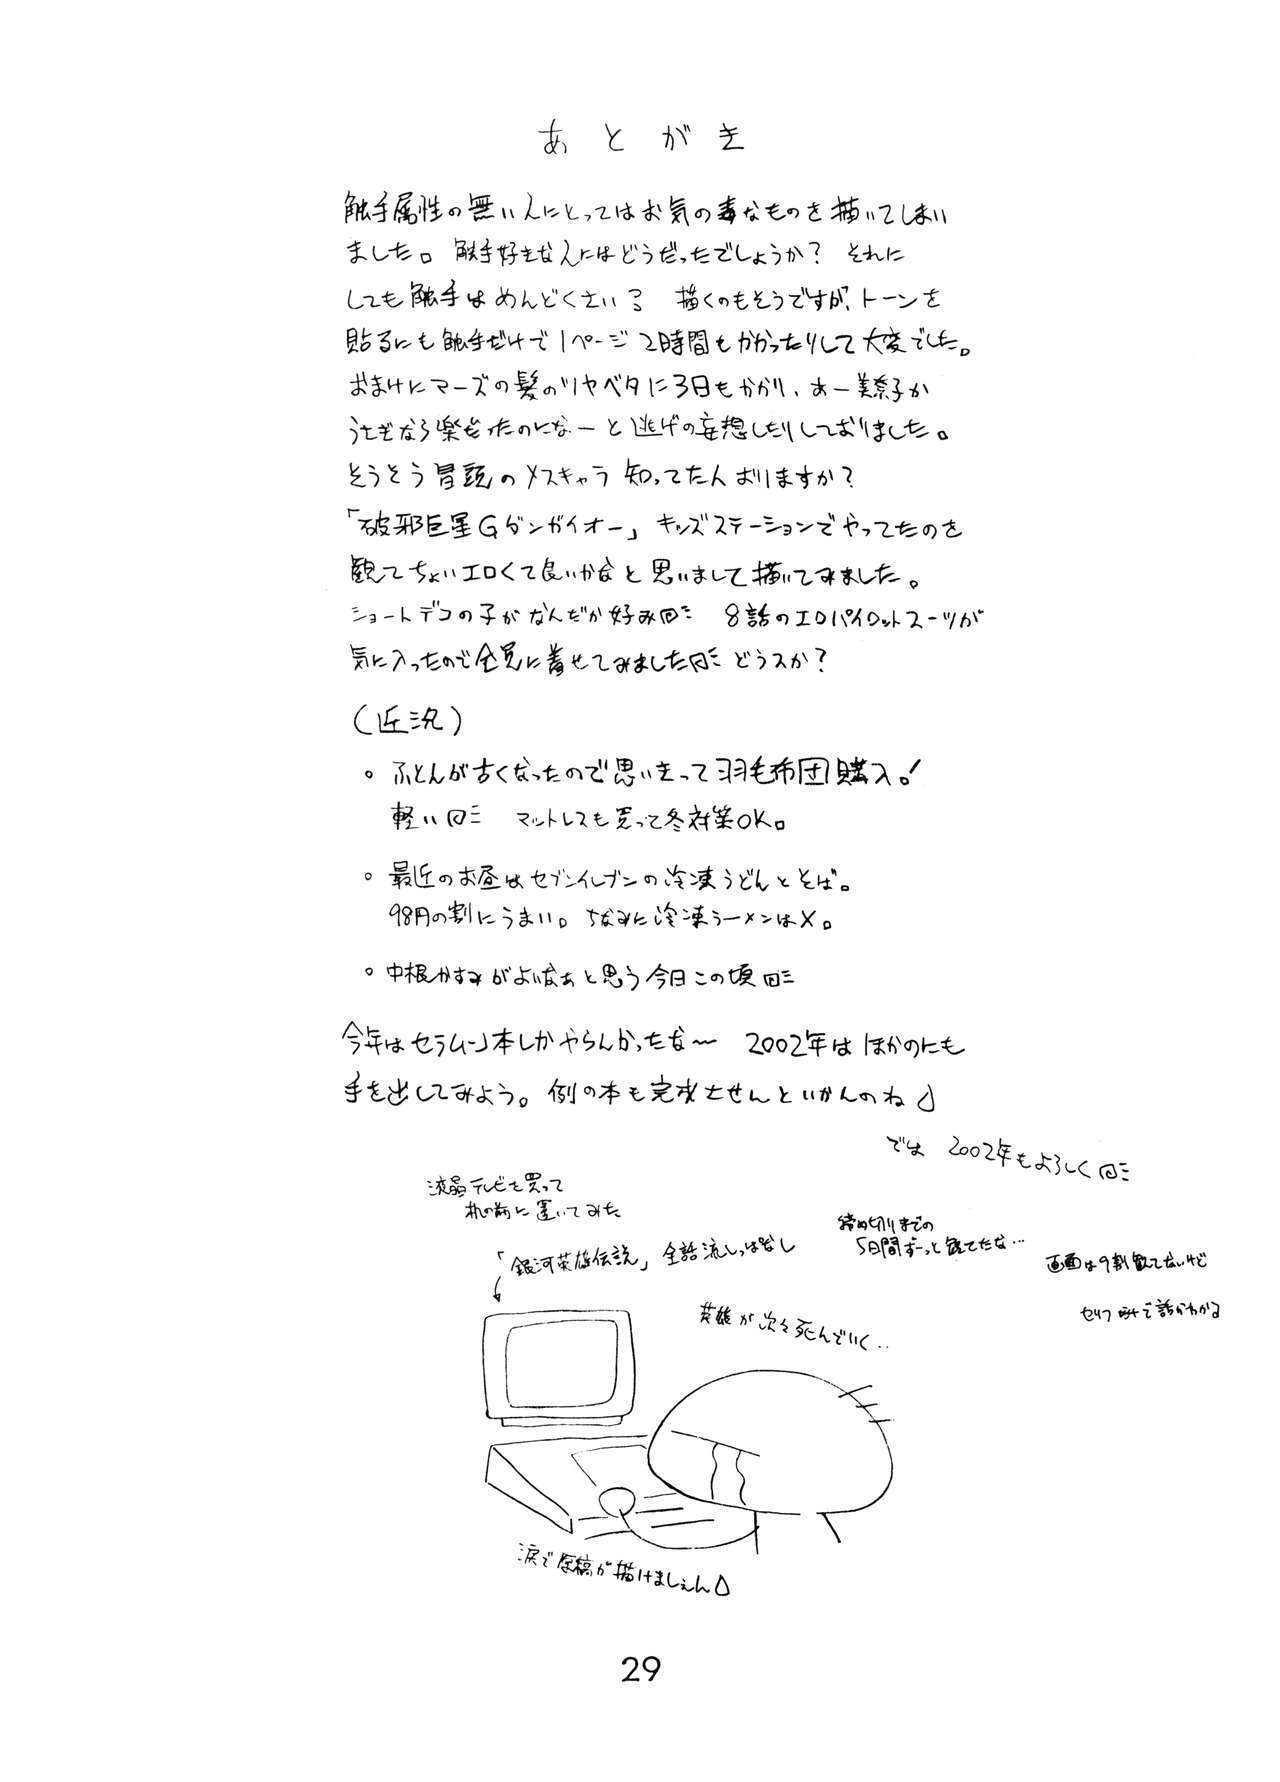 あとがき
触手属性の無い人にとってはお気の毒なものを描いてしまい
ました。触手好きな人にはどうだったでしょうか? それに
しても触手はめんどくさい 描くのもそうですが、トーンを
貼るにも触手だけで1ページ2時間もかかったりして大変でした。
おまけにマーズの髪のツヤベタに3日もかかり、あー美奈子か
うさぎなら楽だったのになーと逃げの妄想したりしておりました。
そうそう冒頭のメスキャラ知ってたん おりますか?
「破邪巨星Gダンガイオー」キッズステーションでやってたのを
観てちょいエロくて良いかなと思いまして描いてみました。
ショートデコの子がなんだか好み 8話のエロパイロットスーツが
気に入ったので全員に着せてみました どうスか?
(近況)
。ふとんが古くなったので思いきって羽毛布団購入。!
軽い マットレスも買って冬対策OK。
。最近のお昼はセブンイレブンの冷凍うどんとそば。
98円の割にうまい。ちなみに冷凍ラーメンは×。
。中根かすみがよいなぁと思う今日この頃
今年はセラムン本しかやらんかったな〜 2002年はほかのにも
手を出してみよう。例の本も完成させんといかんのね
では 2002年もよろしく
液晶テレビを買って
机の前に置いてみた
「銀河英雄伝説」全話流しっぱなし
締め切りまでの
5日間ずーっと観てたな…
画面は9割観てないけど
セリフ だけで話がわかる
英雄が次々死んでいく‥
涙で原稿が描けましぇん
29